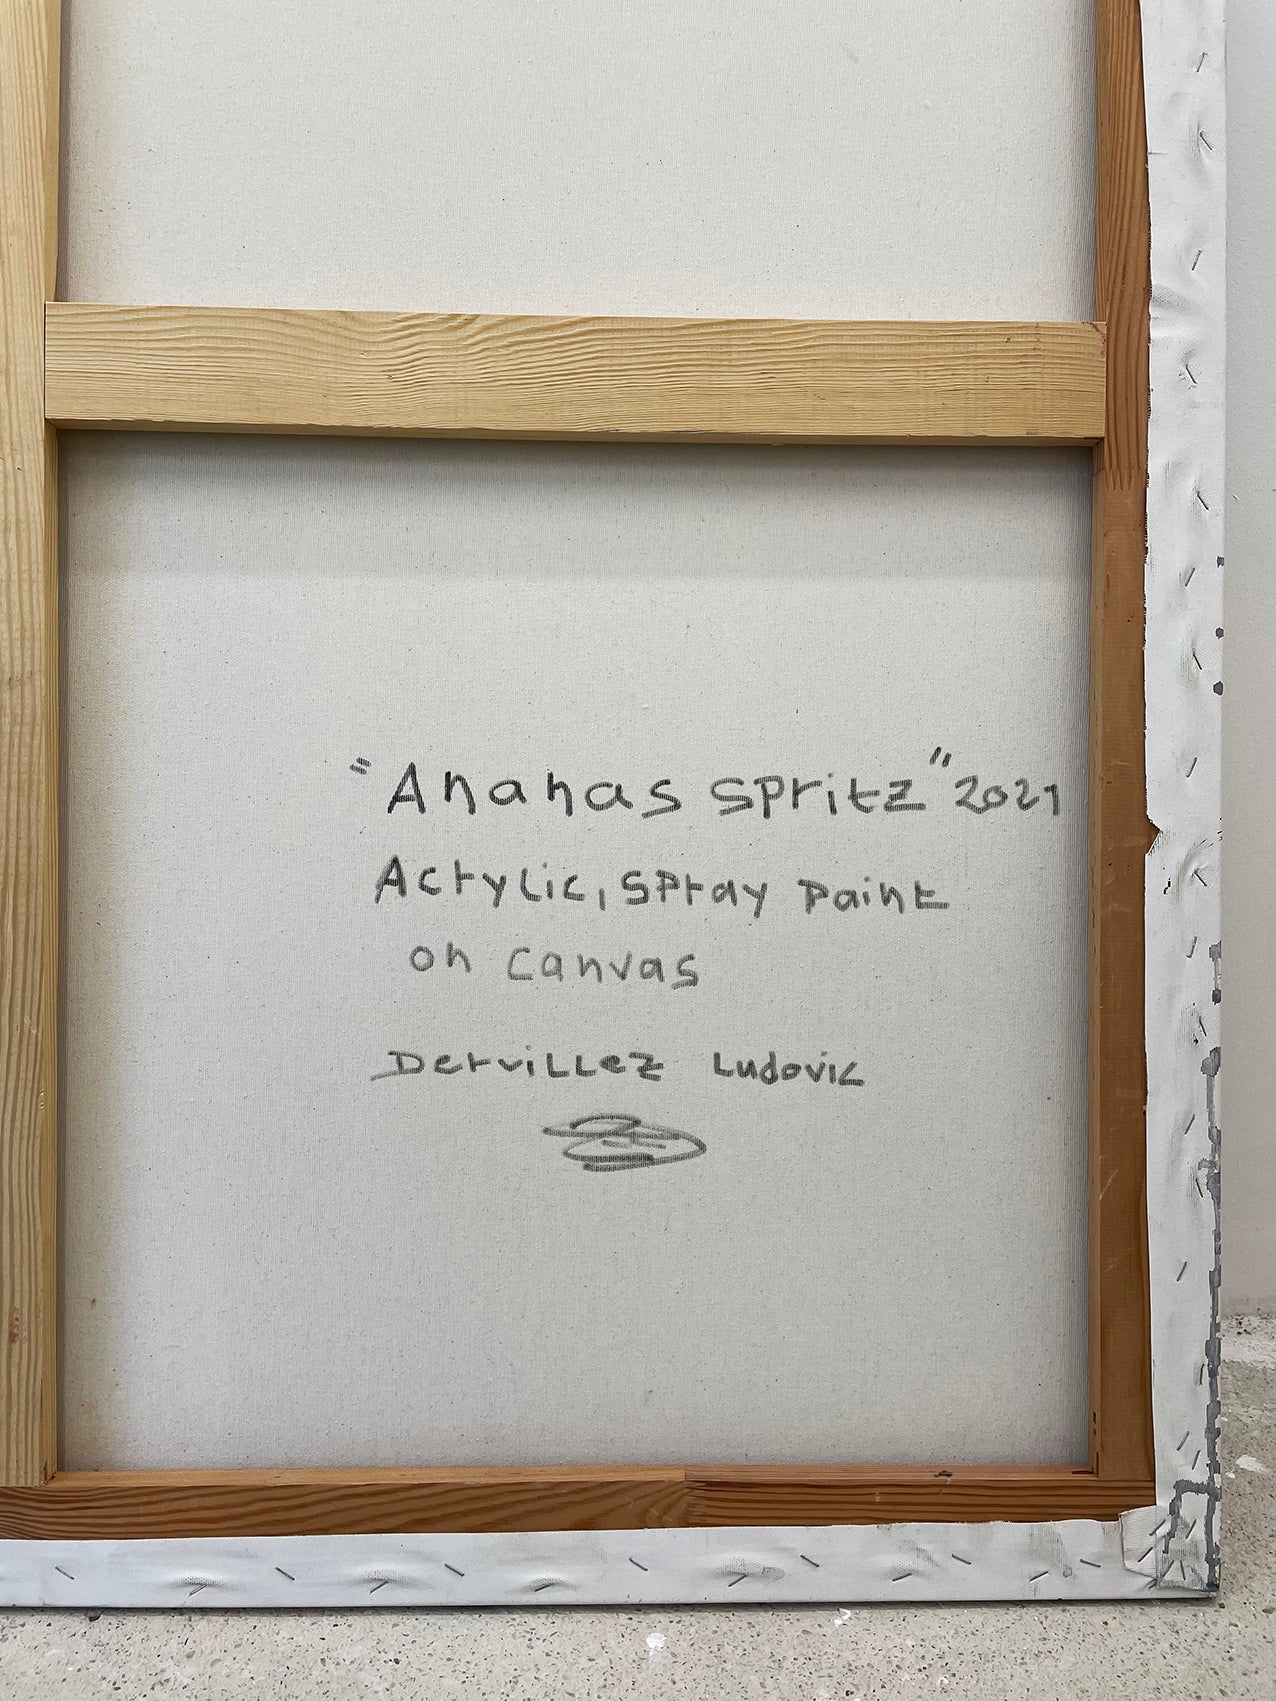 "Ananas spritz" 2021
Acrylic, spray paint
on canvas
Dervillez Ludovic